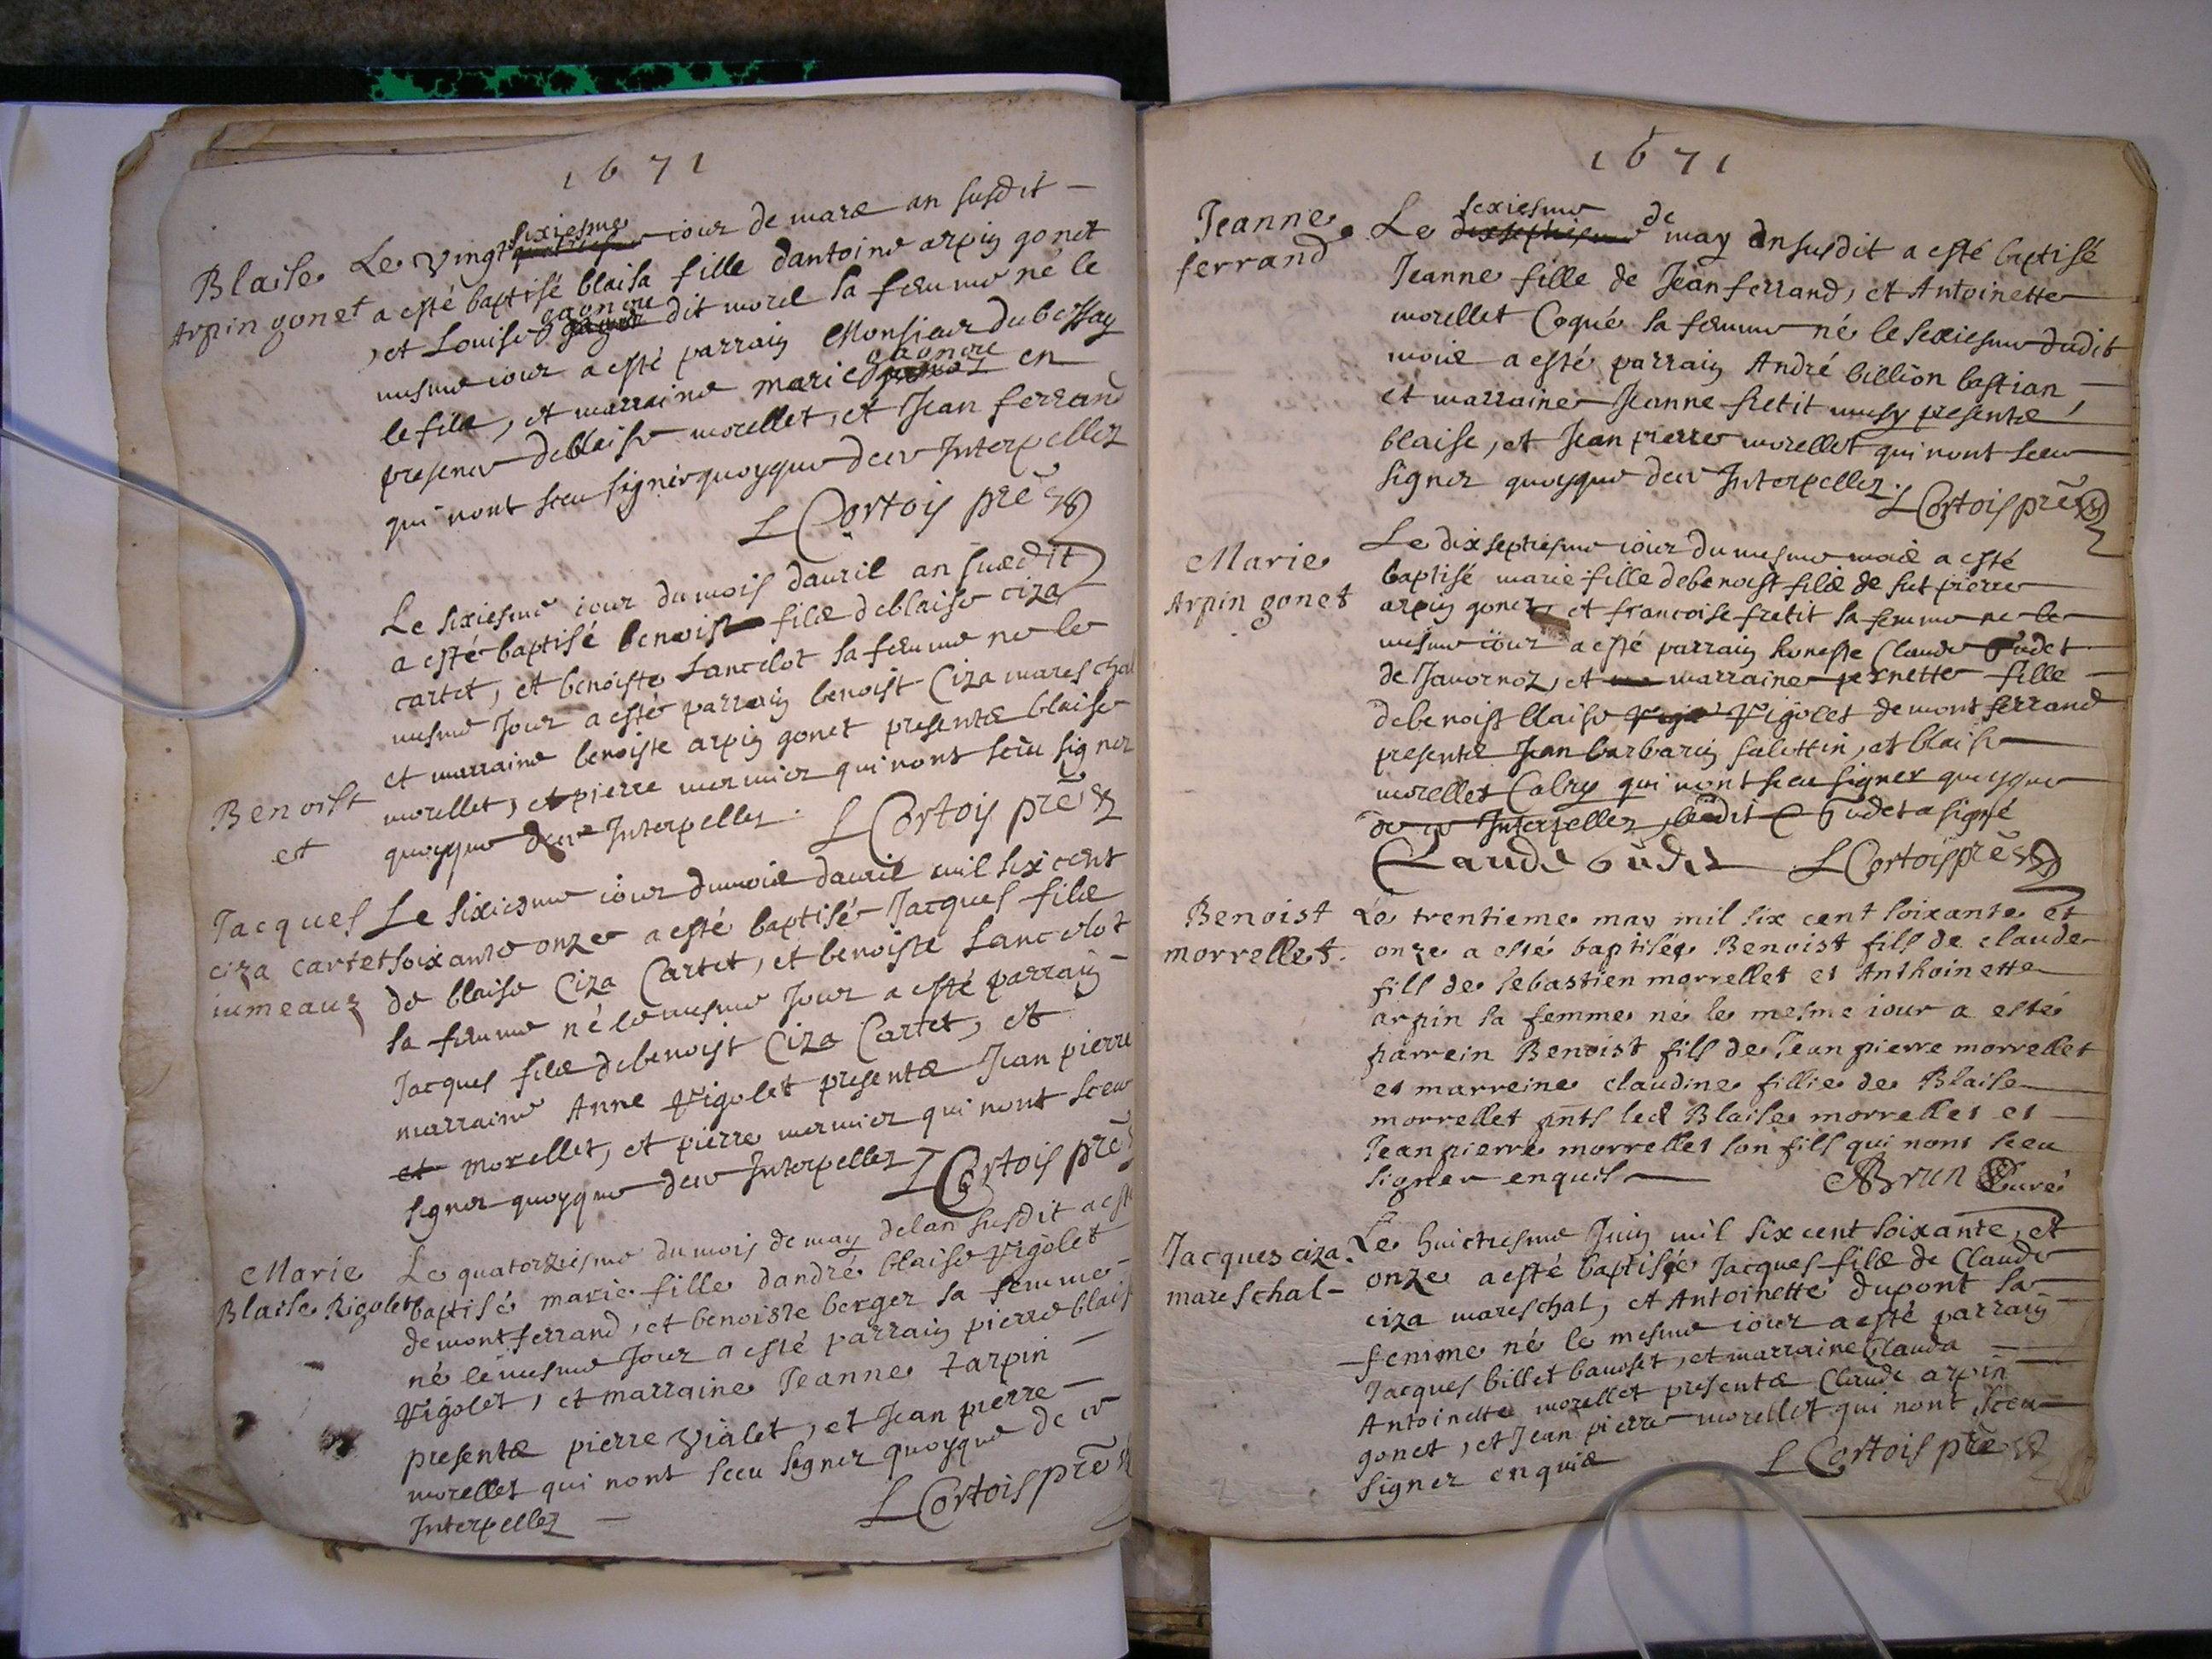 1671
Blaise
Arpin gonet
Le vingt sixiesme jour de mars an susdit
a esté baptisé blaisa fille dantoine arpin gonet
, et Louise dit morel sa femme né le
mesme iour a esté parrain Monsieur dubessay
le fils, et marraine marie en
presence deblaise morellet, et Jean ferrand
qui nont sceu signer quoyque de ce Interpellez
L Cortois pre
Benoist
et
Le sixiesme iour du mois dauril an susdit
a esté baptisé benoist fils deblaise ciza
cartet, et benoiste Lancelot sa femme ne le
mesme Jour a esté parrain benoist Ciza mareschal
et marraine benoiste arpin gonet presents blaise
morellet, et pierre mermier qui nont sceu signer
quoyque de ce Interpellez. L Cortois pre
Jacques
ciza cartet
iumeaux
Le sixiesme iour dumois dauril mil six cent
soixante onze a esté baptisé Jacques fils
de blaise Ciza Cartet, et benoiste Lancelot
sa femme né le mesme Jour a esté parrain
Jacques fils debenoist Ciza Cartet, et
marraine Anne Rigolet presents Jean pierre
et morellet, et pierre mermier qui nont sceu
signer quoyque de ce Interpellez L Cortois pre
Marie
Blaise Rigolet
Le quatorziesme du mois de may delan susdit a esté
baptisé marie fille dandré blaise Rigolet
demontferrand, et benoiste berger sa femme
né le mesme Jour a esté parrain pierre blaise
Rigolet, et marraine Jeanne tarpin
presents pierre vialet, et Jean pierre
morellet qui nont sceu signer quoyque de ce
Interpellez L Cortois pre
1671
Jeanne
ferrand
Le sexiesme de may an susdit a esté baptisé
Jeanne fille de Jean ferrand, et Antoinette
morellet Coqué sa femme né le sexiesme dudit
mois a esté parrain André billion bastian,
et marraine Jeanne fretit musy presents
blaise, et Jean pierre morellet qui nont sceu
signer quoyque de ce Interpellez. L Cortois pre
Marie
Arpin gonet
Le dixseptiesme iour du mesme mois a esté
baptisé marie fille debenoist fils de fut pierre
arpin gonet, et francoise fretit sa femme ne le
mesme iour a esté parrain honeste Claude Gudet
de Javornoz, et marraine pernette fille
debenoist blaise Rigolet demontferrand
presents Jean barbarin salettin, et blaise
morellet Calry qui nont sceu signer quoyque
de ce Interpellez, ledit C Gudet a signé
Claude Gudet L Cortois pre
Benoist
morrellet.
Le trentieme may mil six cent soixante et
onze a esté baptisée Benoist fils de claude
fils de sebastien morrellet et Anthoinette
arpin sa femme né le mesme iour a esté
parrein Benoist fils de Jean pierre morrellet
et marreine claudine fillie de Blaise
morrellet pnts led Blaise morrellet et
Jean pierre morrellet son fils qui nont sceu
signer enquis Brun Curé
Jacques ciza
mareschal
Le huictiesme Juin mil six cent soixante, et
onze a esté baptisée Jacques fils de Claude
ciza mareschal, et Antoinette dupont sa
femme né le mesme iour a esté parrain
Jacques billet bauoset, et marraine Clauda
Antoinette morellet presents Claude arpin
gonet, et Jean pierre morellet qui nont sceu
signer enquis L Cortois pre